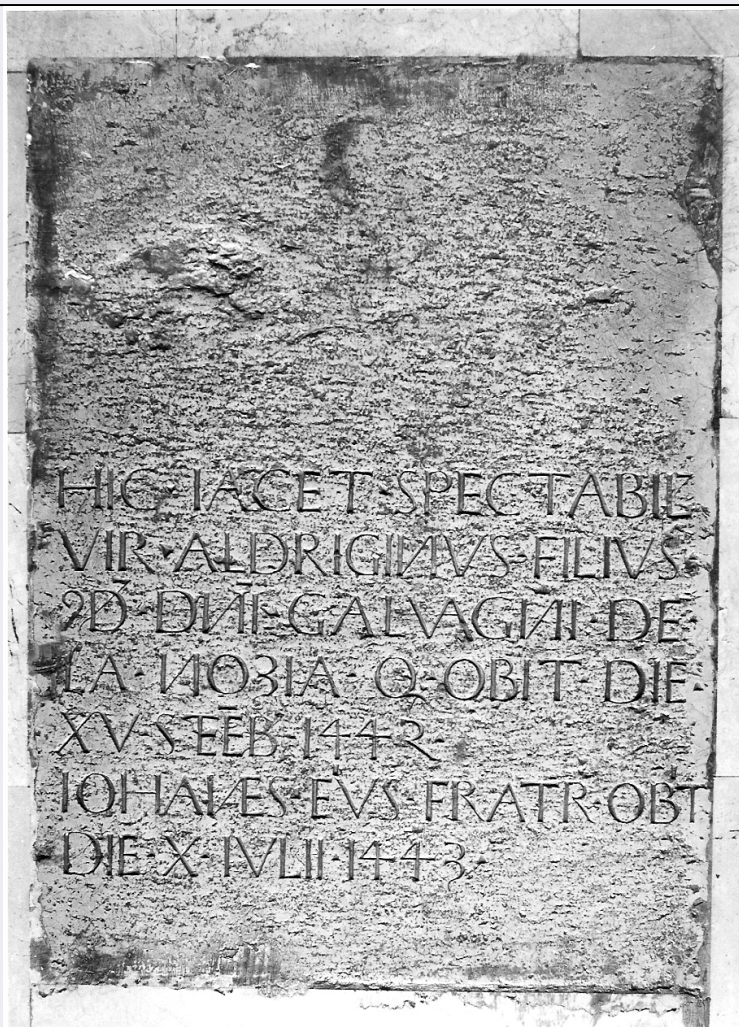 HIC · IACET · SPECTABIL
VIR · ALDRIGINVS · FILIVS ·
ꝯD̄ · DN̄I · GALVAGNI · DE ·
LA · NOƷIA · Q · OBIT · DIE
XV · STEB̄R · 1442 ·
IOHANES · EVS · FRATR · OBT
· DIE · X · IVLII · 1443 ·